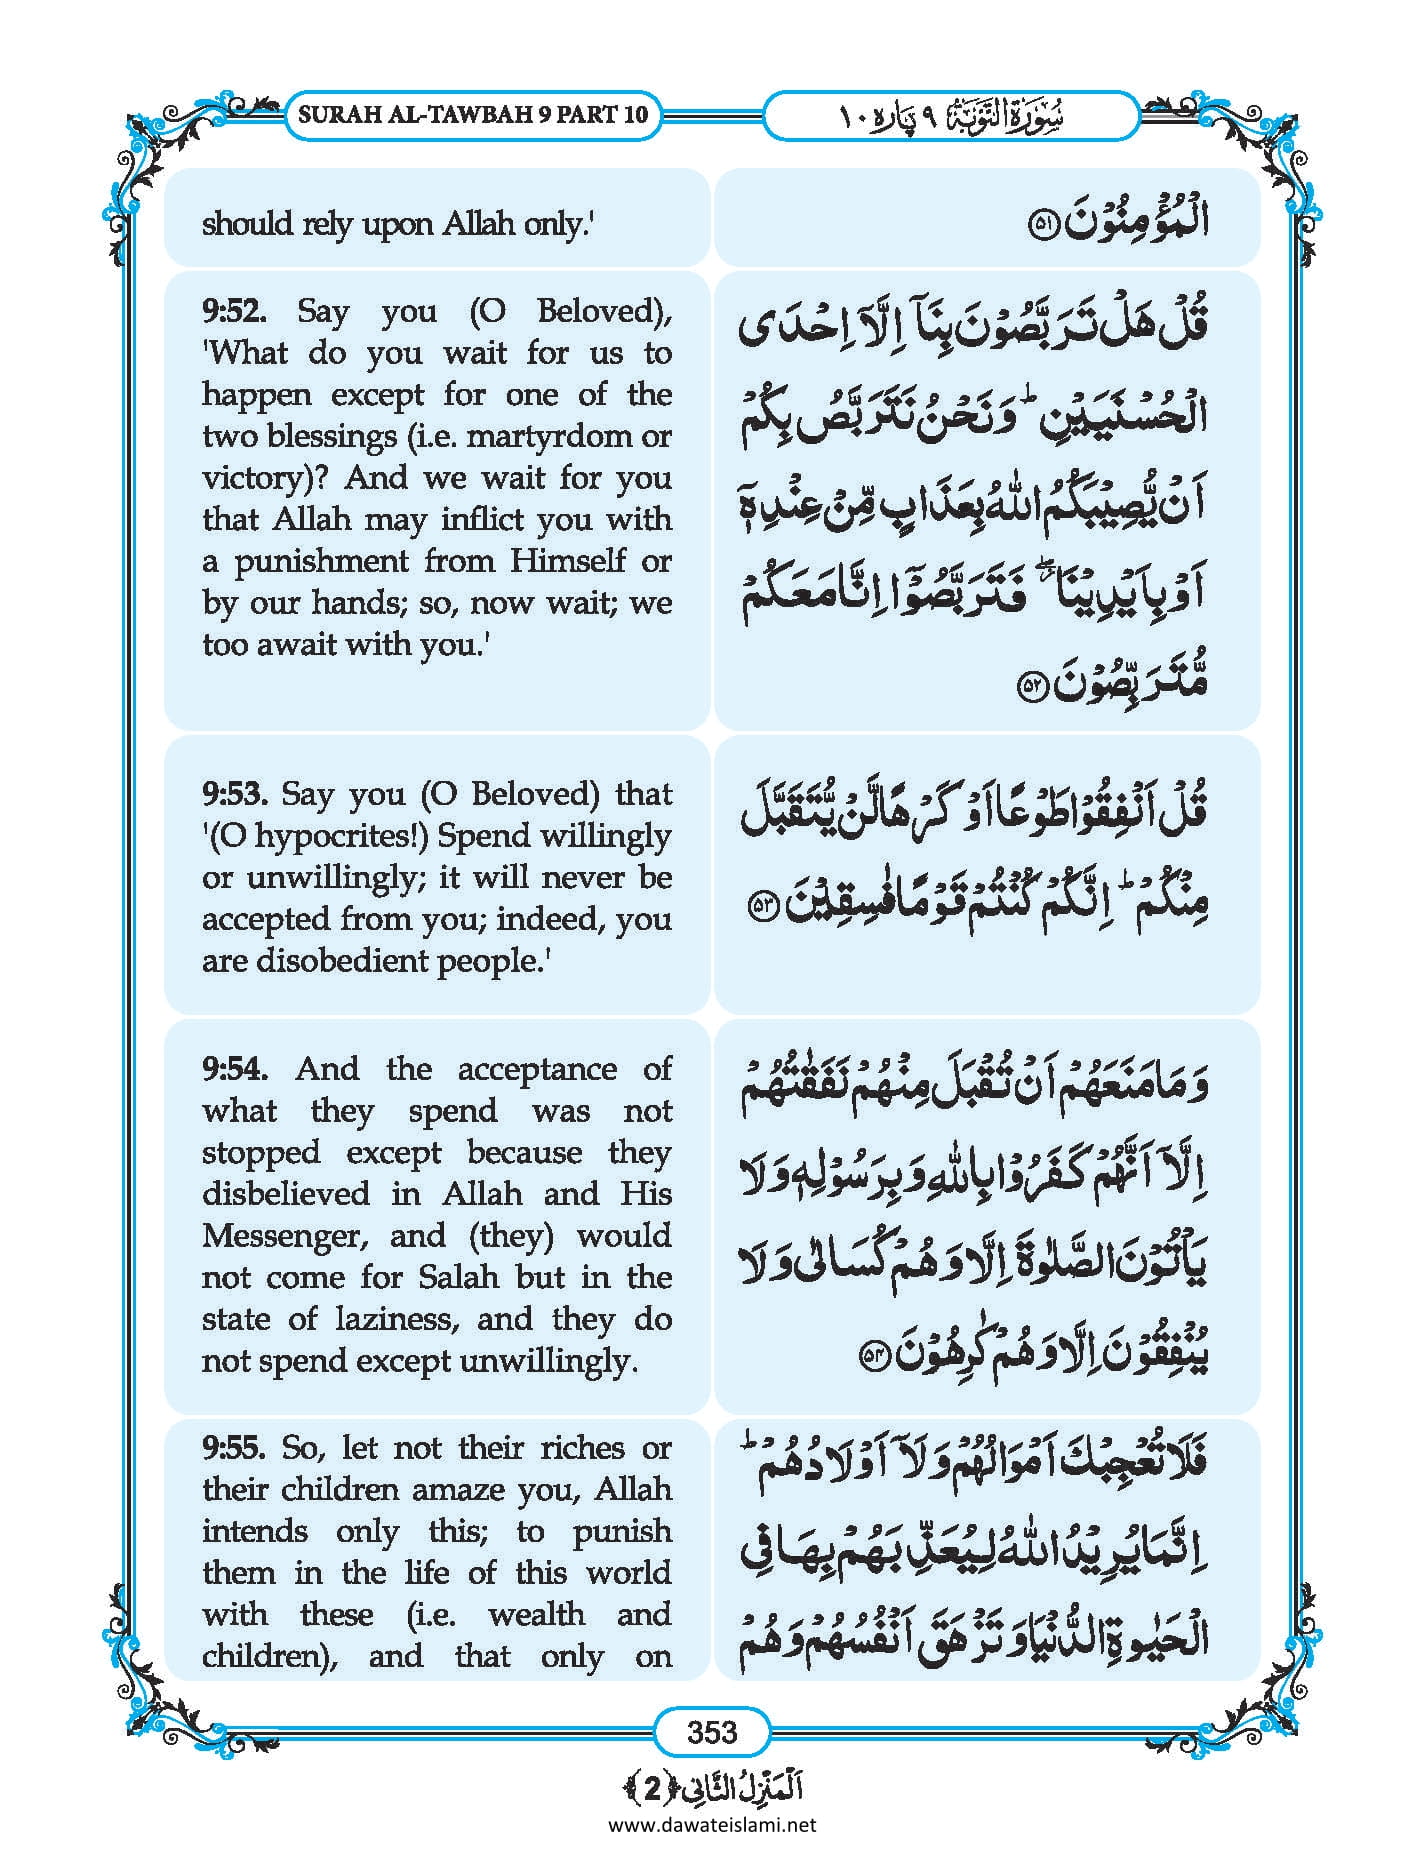 SURAH AL-TAWBAH 9 PART 10
سُوْرَةُ التَّوْبَةِ ٩ پاره ١٠
should rely upon Allah only.'
الْمُؤْمِنُوْنَ ﴿۵۱﴾
9:52. Say you (O Beloved),
'What do you wait for us to
happen except for one of the
two blessings (i.e. martyrdom or
victory)? And we wait for you
that Allah may inflict you with
a punishment from Himself or
by our hands; so, now wait; we
too await with you.'
قُلْ هَلْ تَرَبَّصُوْنَ بِنَاۤ اِلَّاۤ اِحْدَى
الْحُسْنَيَيْنِ ؕ وَ نَحْنُ نَتَرَبَّصُ بِكُمْ
اَنْ يُّصِيْبَكُمُ اللّٰهُ بِعَذَابٍ مِّنْ عِنْدِهٖۤ
اَوْ بِاَيْدِيْنَا ۖ٘ فَتَرَبَّصُوْۤا اِنَّا مَعَكُمْ
مُّتَرَبِّصُوْنَ ﴿۵۲﴾
9:53. Say you (O Beloved) that
'(O hypocrites!) Spend willingly
or unwillingly; it will never be
accepted from you; indeed, you
are disobedient people.'
قُلْ اَنْفِقُوْا طَوْعًا اَوْ كَرْهًا لَّنْ يُّتَقَبَّلَ
مِنْكُمْ ؕ اِنَّكُمْ كُنْتُمْ قَوْمًا فٰسِقِيْنَ ﴿۵۳﴾
9:54. And the acceptance of
what they spend was not
stopped except because they
disbelieved in Allah and His
Messenger, and (they) would
not come for Salah but in the
state of laziness, and they do
not spend except unwillingly.
وَ مَا مَنَعَهُمْ اَنْ تُقْبَلَ مِنْهُمْ نَفَقٰتُهُمْ
اِلَّاۤ اَنَّهُمْ كَفَرُوْا بِاللّٰهِ وَ بِرَسُوْلِهٖ وَ لَا
يَاْتُوْنَ الصَّلٰوةَ اِلَّا وَ هُمْ كُسَالٰى وَ لَا
يُنْفِقُوْنَ اِلَّا وَ هُمْ كٰرِهُوْنَ ﴿۵۴﴾
9:55. So, let not their riches or
their children amaze you, Allah
intends only this; to punish
them in the life of this world
with these (i.e. wealth and
children), and that only on
فَلَا تُعْجِبْكَ اَمْوَالُهُمْ وَ لَاۤ اَوْلَادُهُمْ ؕ
اِنَّمَا يُرِيْدُ اللّٰهُ لِيُعَذِّبَهُمْ بِهَا فِي
الْحَيٰوةِ الدُّنْيَا وَ تَزْهَقَ اَنْفُسُهُمْ وَ هُمْ
353
اَلْمَنْزِلُ الثَّانِي ﴿2﴾
www.dawateislami.net